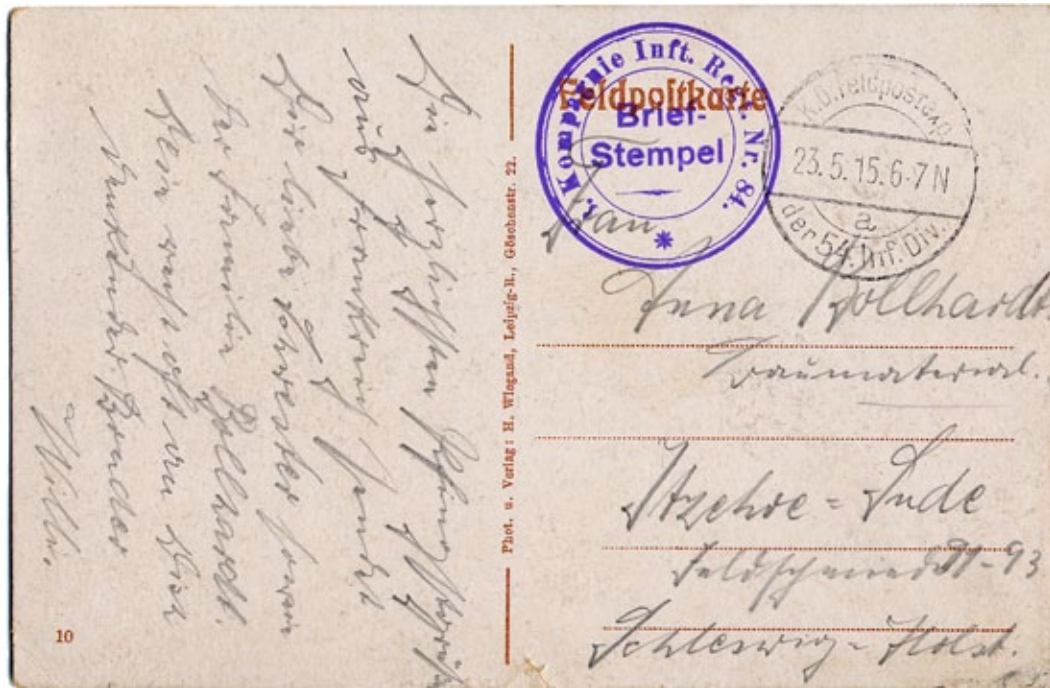 Die herzlichsten Pfingstgrüße
aus Frankreich sendet
Dir liebe Schwester sowie
der Familie Bollhardt.
Dein oft an Dich
denkender Bruder
Willi.
10
Phot. u. Verlag: H. Wiegand, Leipzig-R., Göschenstr. 22.
Feldpostkarte
Kompagnie Inft. Regt. Nr. 84.
Brief-
Stempel
K.D. Feldpostexp.
23.5.15.6-7N
a
der 54. Inf. Div.
Frau
Anna Bollhardt
Baumaterial.
Itzehoe = Sude
Feldschmied 91-93
Schleswig = Holst.